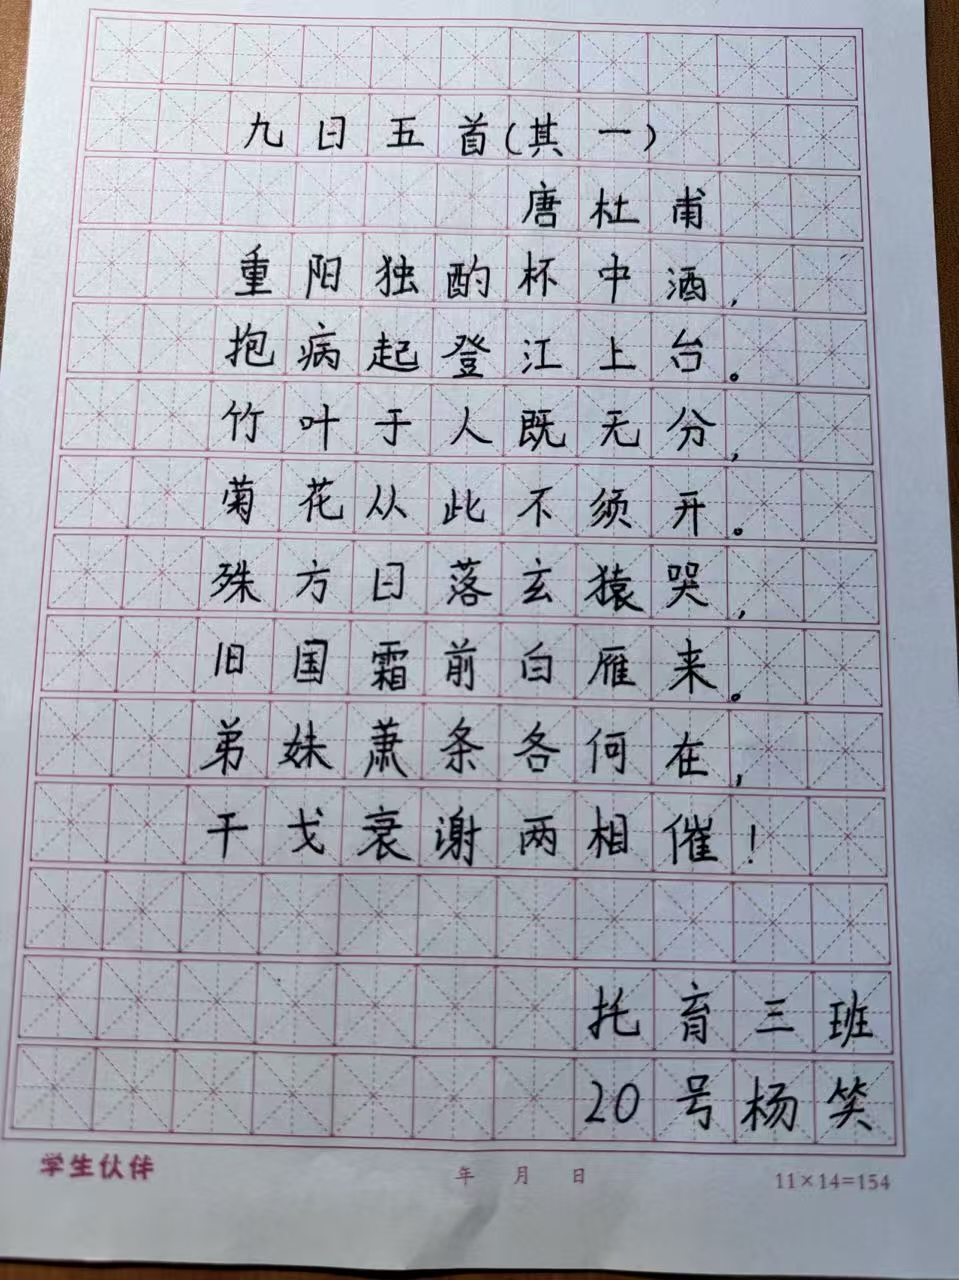 九日五首(其一)
唐杜甫
重阳独酌杯中酒,
抱病起登江上台。
竹叶于人既无分,
菊花从此不须开。
殊方日落玄猿哭,
旧国霜前白雁来。
弟妹萧条各何在,
干戈衰谢两相催!
托育三班
20号杨笑
学生伙伴 年 月 日 11×14=154